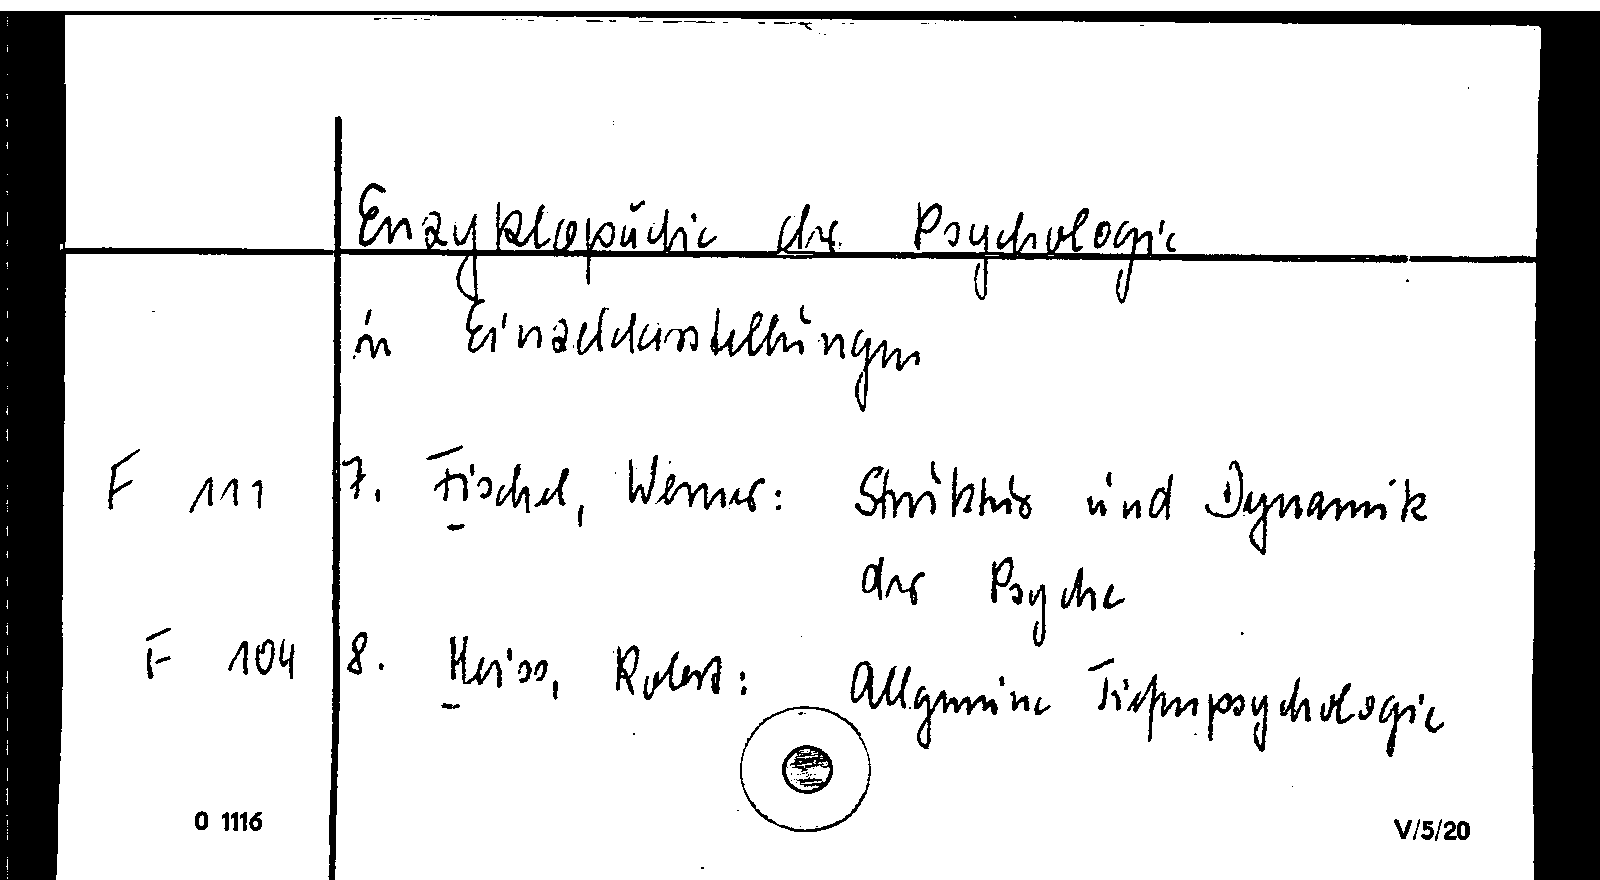 Enzyklopädie der Psychologie
in Einzeldarstellungen
F 111 7. Fischel, Werner: Struktur und Dynamik
der Psyche
F 104 8. Heiss, Robert: Allgemeine Tiefenpsychologie
O 1116 V/5/20